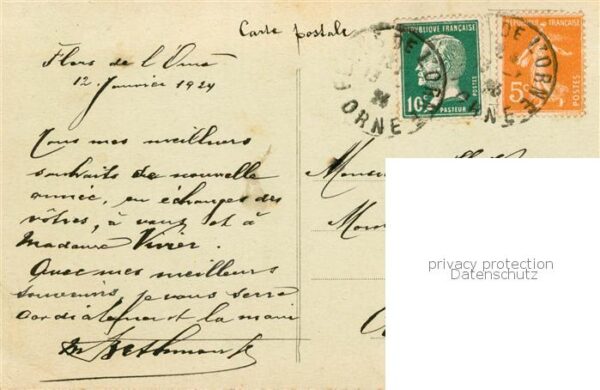 Carte postale
Flers de l'Orne
12 Janvier 1924
Tous mes meilleurs
souhaits de nouvelle
année, en échanges des
vôtres, à vous et à
Madame Vivier.
Avec mes meilleurs
souvenirs, je vous serre
cordialement la main
RÉPUBLIQUE FRANÇAISE
10c
POSTES
PASTEUR
RÉPUBLIQUE FRANÇAISE
5c
POSTES
DE L'ORNE
ORNE
DE L'ORNE
ORNE
privacy protection
Datenschutz